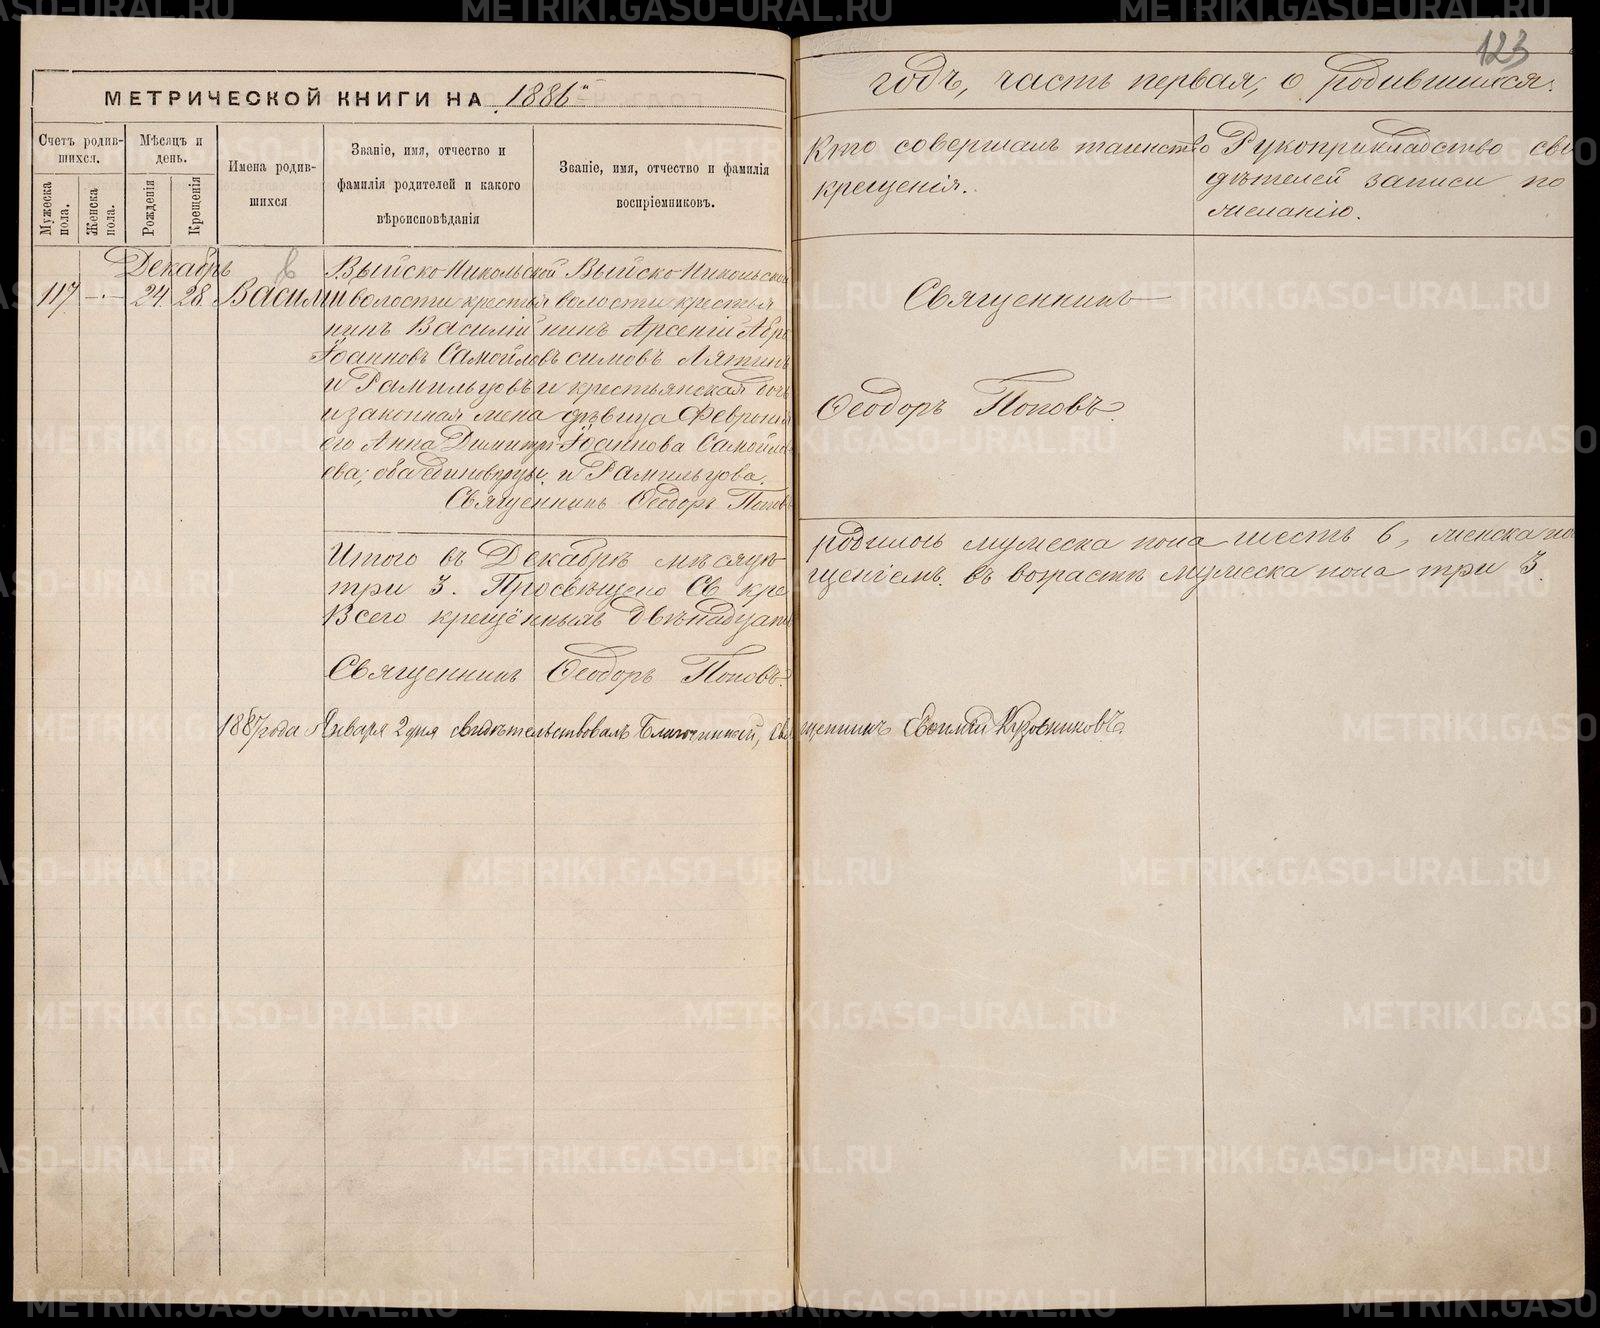 123
МЕТРИЧЕСКОЙ КНИГИ НА 1886й
годъ, часть первая, о родившихся.
Счетъ родившихся.
Мужеска пола.
Женска пола.
Мѣсяцъ и день.
Рожденія
Крещенія
Имена родившихся
Званіе, имя, отчество и фамилія родителей и какого вѣроисповѣданія
Званіе, имя, отчество и фамилія воспріемниковъ.
Кто совершалъ таинство
крещенія.
Рукоприкладство сви
дѣтелей записи по
желанію.
Декабрь
117 - 24 28 Василій
Выйско Никольской
волости крестья
нинъ Василій
Іоанновъ Самойловъ
и Рамильцовъ
и законная жена
его Анна Димитрі
ева; оба единовѣрцы.
Выйско Никольской
волости крестья
нинъ Арсеній Абро
симовъ Лятинъ
и крестьянская дочь
дѣвица Февронія
Іоаннова Самойло
и Рамильцова.
Священникъ Ѳеодоръ Поповъ
Священникъ
Ѳеодоръ Поповъ
Итого въ Декабрѣ мѣсяцѣ родилось мужеска пола шесть 6, женска по
три 3. Просвѣщено Св кре щеніемъ въ возрастѣ мужеска пола три 3.
Всего крещённыхъ двѣнадцать
Священникъ Ѳеодоръ Поповъ.
1887 года Января 2 дня свидѣтельствовалъ Благочинный, Священникъ Евфимій Кузовниковъ
METRIKI.GASO-URAL.RU